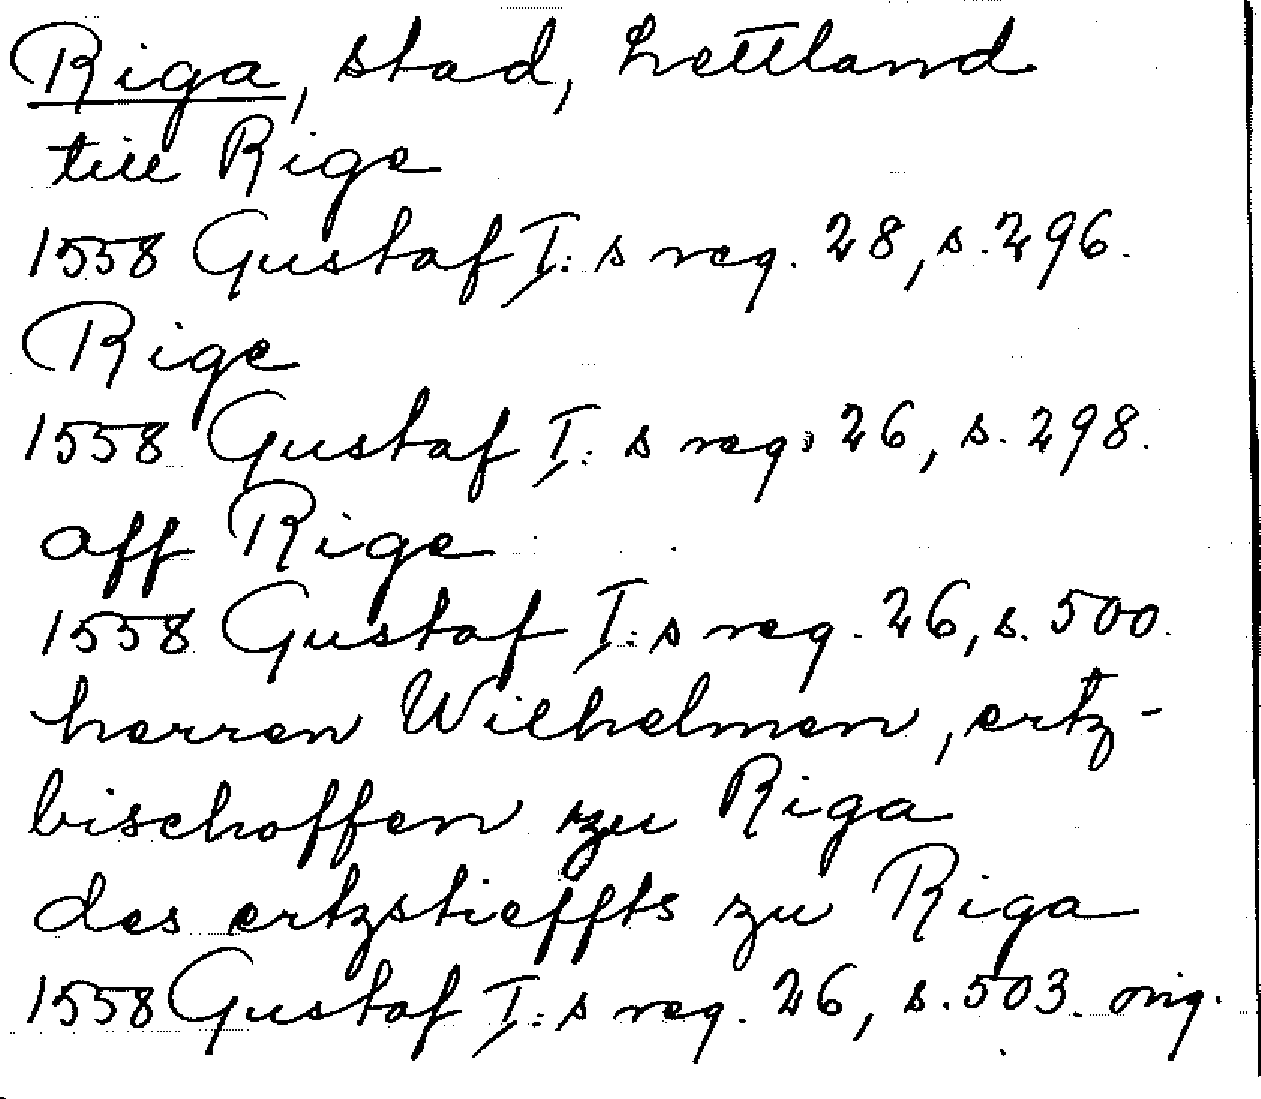 Riga, stad, Lettland
till Rige
1558 Gustaf I:s reg. 28, s. 296.
Rige
1558 Gustaf I:s reg. 26, s. 298.
aff Rige
1558 Gustaf I:s reg. 26, s. 500.
herren Wilhelmen, ertz-
bischoffen zu Riga
des ertzstieffts zu Riga
1558 Gustaf I:s reg. 26, s. 503. orig.